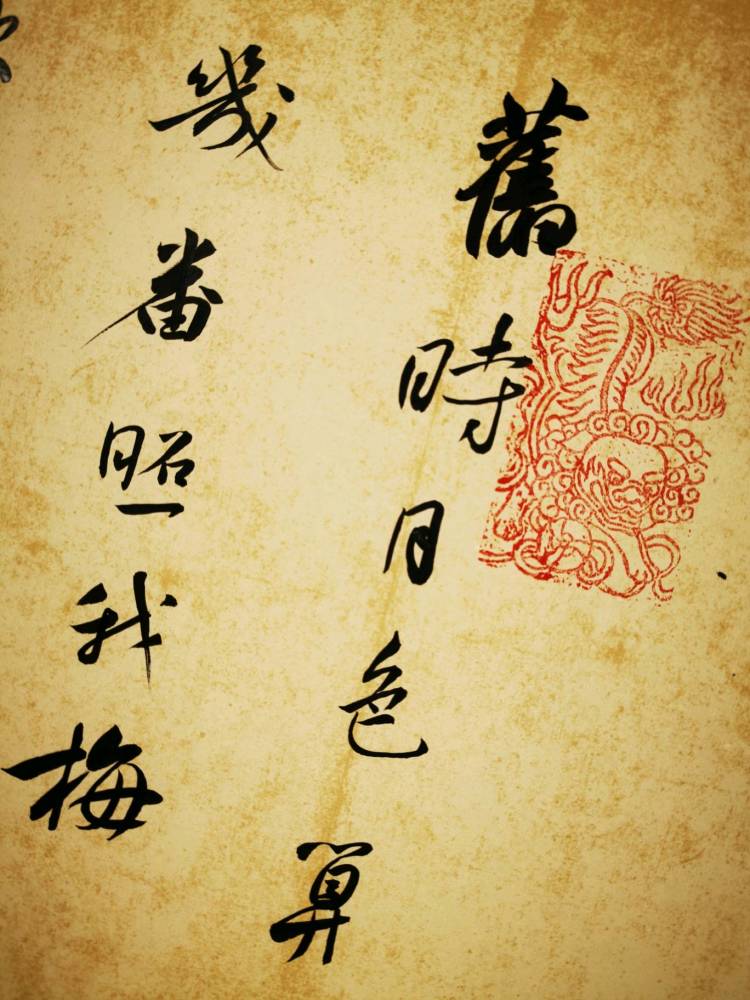 舊時月色算
幾番照我梅